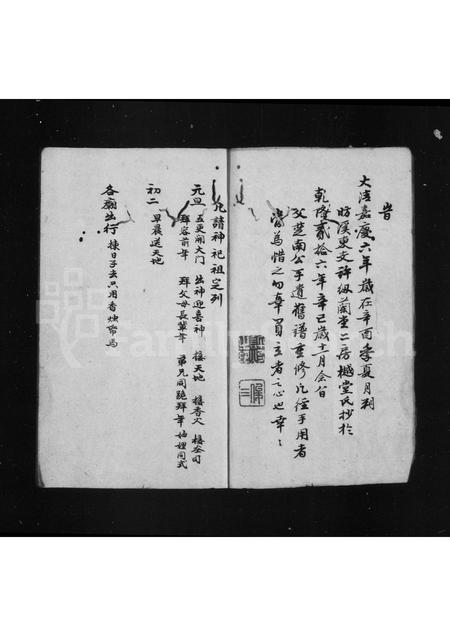 旹
大清嘉慶六年歲在辛酉季夏月利
昉溪東文許級蘭堂二房樾堂氏抄於
乾隆貳拾六年辛巳歲十一月余旨
父芝南公手遺舊譜重修凡經手用者
為惜之勿棄買主者之心也幸〻
凡請神祀祖定列
元旦 五更開大门 出神迎喜神 接天地 接香火 接灶司
拜容前年 拜父母長輩年 弟兄同跪拜年 妯娌同式
初二 早晨送天地
各廟出行 揀日子去只用香燭帋馬